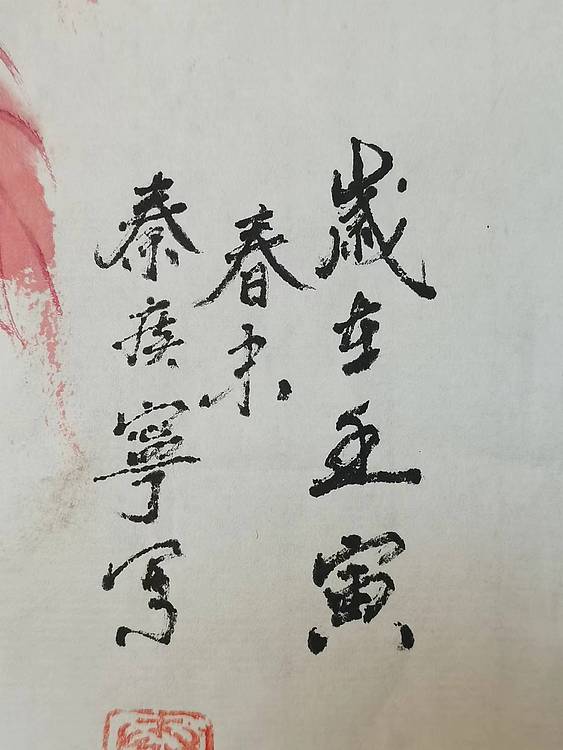 歲在壬寅
春末
秦疾寧写